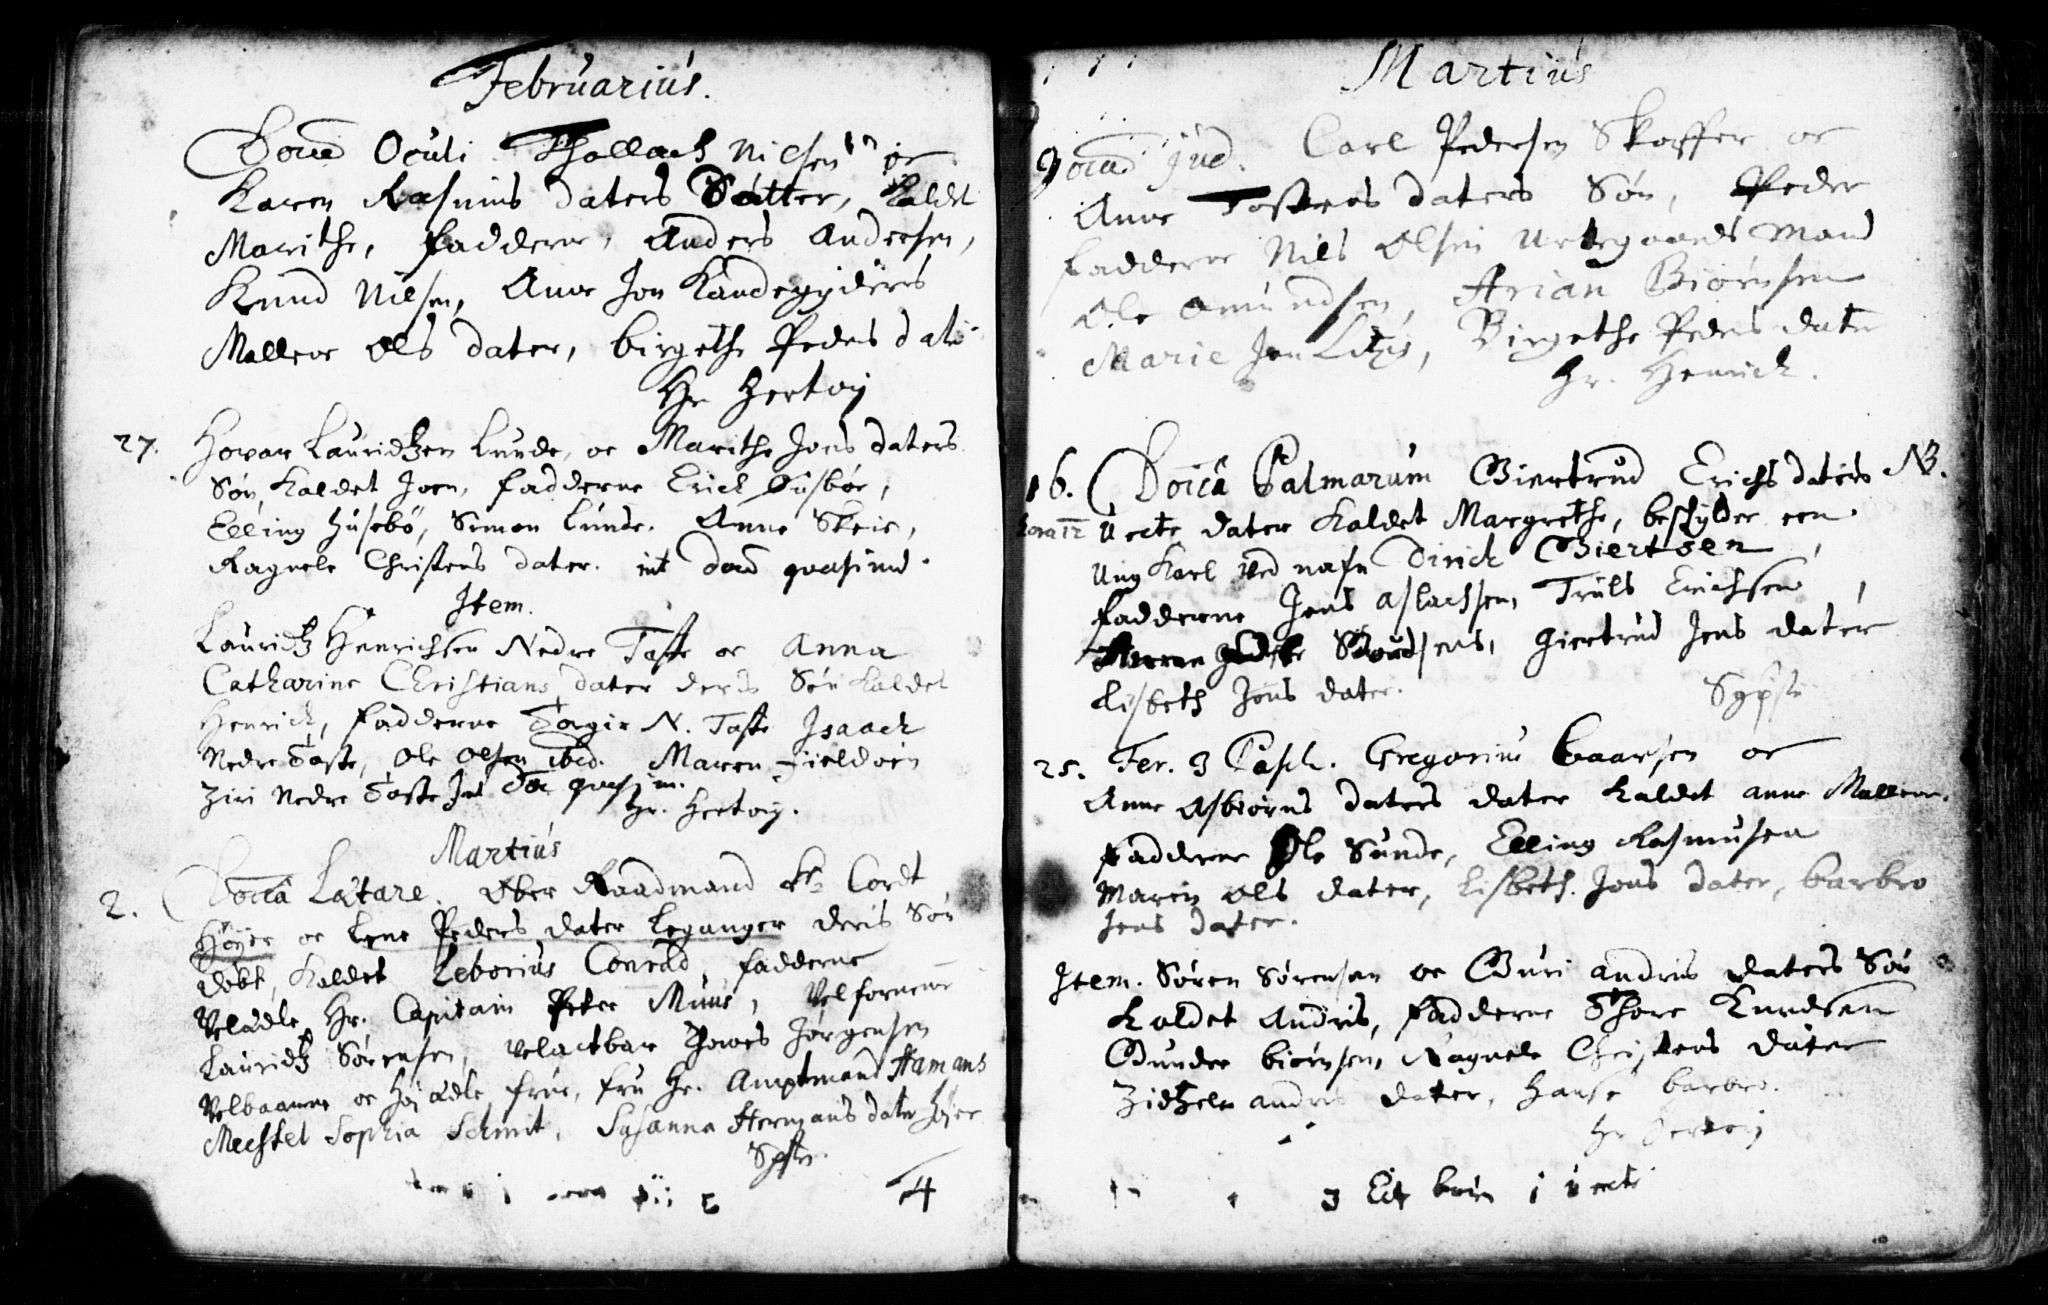 Februarius.
Dom Oculi Thollach Nilsen oc
Karen Rasmus daters Datter, Kaldet
Marithe, fadderne, Anders Andersen,
Knud Nilsen, Anne Jon Kandegyders
Mallene Ols dater, birgethe Peders dater
Hr Hertvig
27. Hovar Lauridtzen Lunde, oc Marithe Jens daters
Søn, Kaldet Joen, fadderne Erick
Elling Husebø, Simon Lunde. Anne Skeie,
Ragnele Christens dater. int dom quasimod.
Item.
Lauridtz Henrichsen Nedre Taste oc Anna
Catharine Christians dater deris Søn kaldet
Henrick, fadderne Tagie N. Taste Isaack
Nedre Taste, Ole Olsen ibid. Maren Fieldøen
Ziri Nedre Taste Int Do quasim.
Hr. Hertvig.
Martius
2. Doica Lætare. Ober Raadmand Cordt
Høyer oc Lene Peders dater Leganger deris Søn
døbt, Kaldet Leborius Conrad, fadderne
Velædle Hr. Capitain Peter Muus, Velfornemme
Lauridtz Sørensen, velactbar Jørgensen
Velbaarne oc Høj ædle frue, fru Hr. Amptmand Hamans
Mechtel Sophia Schmit, Susanna Hermans dater Høyer
4
Martius
9 Doica Jud. Carl Pedersen Skaffer oc
Anne Tostens daters Søn, Peder
fadderne Nils Olsen Urtegaards Mand
Ole Omundsen, Arian Biørnsen
Marie Jon, Birgethe Peders dater
Hr. Henrick.
16. Doica Palmarum Giertrud Erichs daters NB.
Uecte dater kaldet Margrethe, beskylder een
Ung Karl ved nafn Dirick Giertsen,
fadderne Jens Aslachsen, Truls Erichsen,
Giertrud Jens dater
Lisbeth Jens dater.
25. Fer. 3 Pasch. Gregorius Baarsen oc
Anne Asbiørns daters dater kaldet anne Mallene.
fadderne Ole Sunde, Elling Rasmusen
Maren Ols dater, Lisbeth Jens dater, barbro
Jens dater.
Item. Søren Sørensen oc Guri andris daters Søn
Kaldet Andris, fadderne Thore Knudsen
Gunder biørnsen, Ragnele Christens dater
Zidtzele andris dater, Hanse barbro.
Hr Hertvig
3 Ect børn 1 uecte